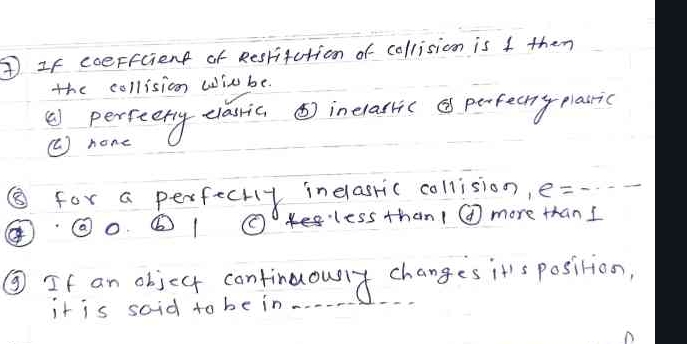 ⑦ If coeffcient of Restitution of collision is 1 then
the collision will be.
a) perfectly elastic, b) inelastic c) perfectly plastic
d) none
⑧ for a perfectly inelastic collision, e = -----
ⓐ 0. ⓑ 1 ⓒ less than 1 ⓓ more than 1
⑨ If an object continuously changes it's position,
it is said to be in ----------